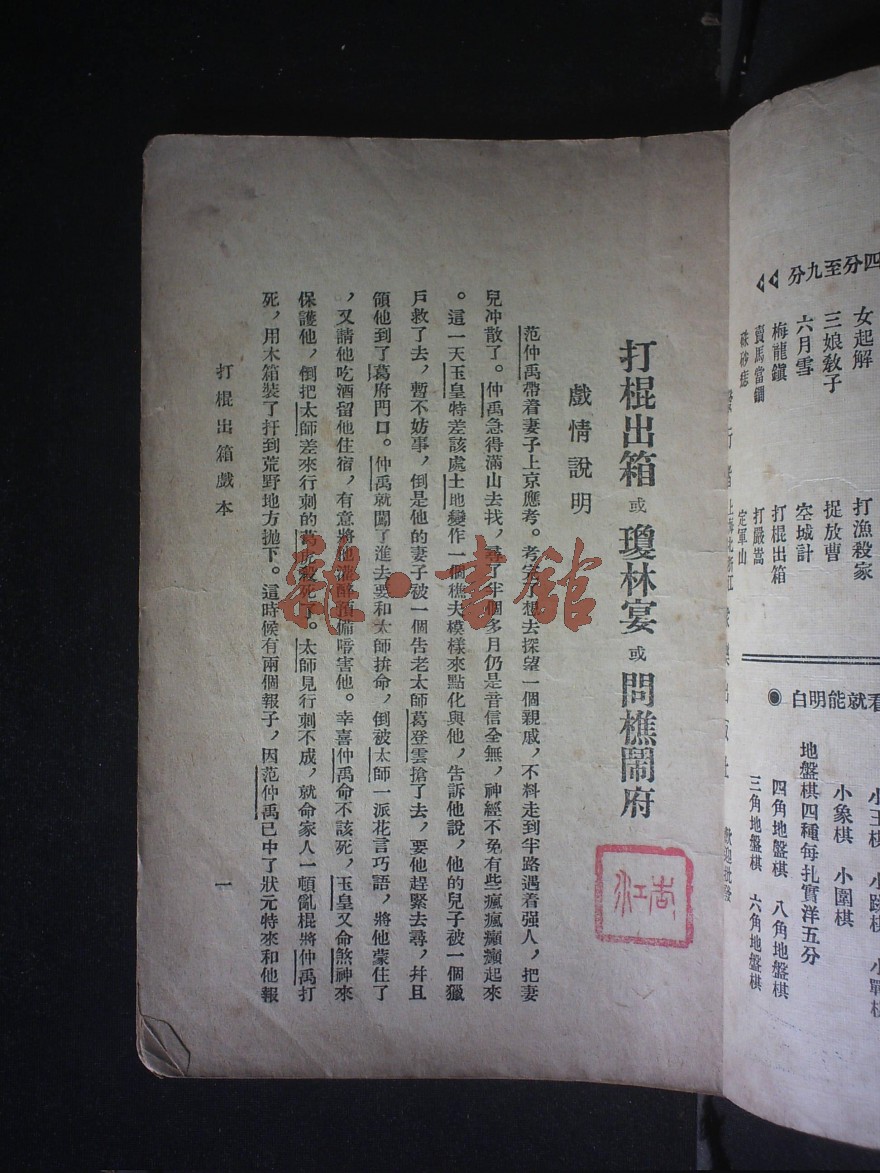 四分至九分
女起解
三娘教子
六月雪
梅龍鎮
賣馬當鐧
硃砂痣
打漁殺家
捉放曹
空城計
打棍出箱
打嚴嵩
定軍山
看就能明白
小象棋　小圍棋
地盤棋四種每扎實洋五分
四角地盤棋　八角地盤棋
三角地盤棋　六角地盤棋
歡迎批發
打棍出箱或瓊林宴或問樵鬧府
戲情說明
范仲禹帶着妻子上京應考。考完了想去探望一個親戚，不料走到半路遇着强人，把妻
兒冲散了。仲禹急得滿山去找，尋了半個多月仍是音信全無，神經不免有些瘋瘋癲癲起來
。這一天玉皇特差該處土地變作一個樵夫模樣來點化與他，告訴他說，他的兒子被一個獵
戶救了去，暫不妨事，倒是他的妻子被一個告老太師葛登雲搶了去，要他趕緊去尋，幷且
領他到了葛府門口。仲禹就闖了進去要和太師拚命，倒被太師一派花言巧語，將他蒙住了
，又請他吃酒留他住宿，有意將他灌醉預備喑害他。幸喜仲禹命不該死，玉皇又命煞神來
保護他，倒把太師差來行刺的葛虎殺死了。太師見行刺不成，就命家人一頓亂棍將仲禹打
死，用木箱裝了扞到荒野地方拋下。這時候有兩個報子，因范仲禹已中了狀元特來和他報
打棍出箱戲本
一
雜·書館